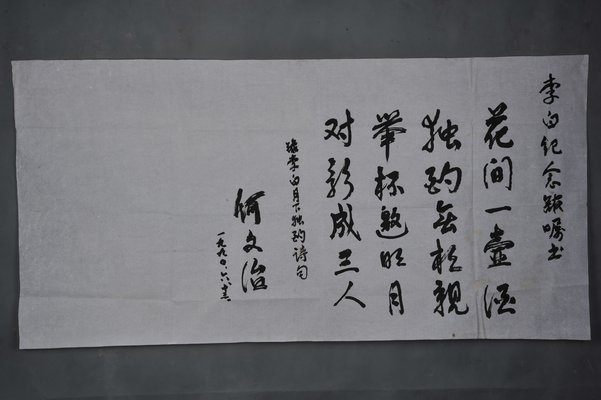 李白纪念馆嘱书
花间一壶酒
独酌无相親
举杯邀明月
对影成三人
录李白月下独酌诗句
何文治
一九九〇.六.十三